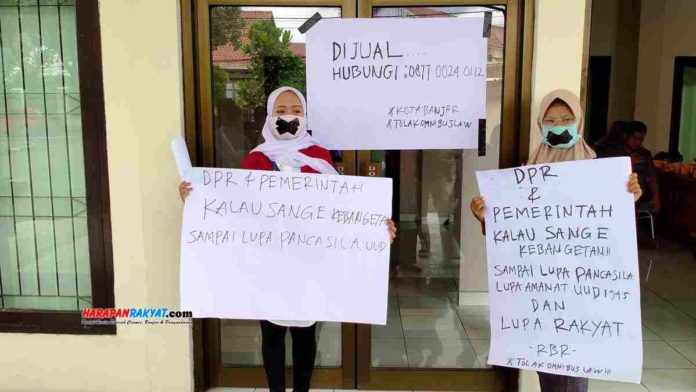 DIJUAL....
HUBUNGI : 0877 0024 0112
#KOTABANJAR
#TOLAKOMNIBUSLAW
DPR & PEMERINTAH
KALAU SANGE KEBANGETAN
SAMPAI LUPA PANCASILA, UUD
DPR
&
PEMERINTAH
KALAU SANGE
KEBANGETAN!!
SAMPAI LUPA PANCASILA
LUPA AMANAT UUD 1945
DAN
LUPA RAKYAT
-RBR-
#TOLAK OMNIBUS LAW !!!
HARAPANRAKYAT.com